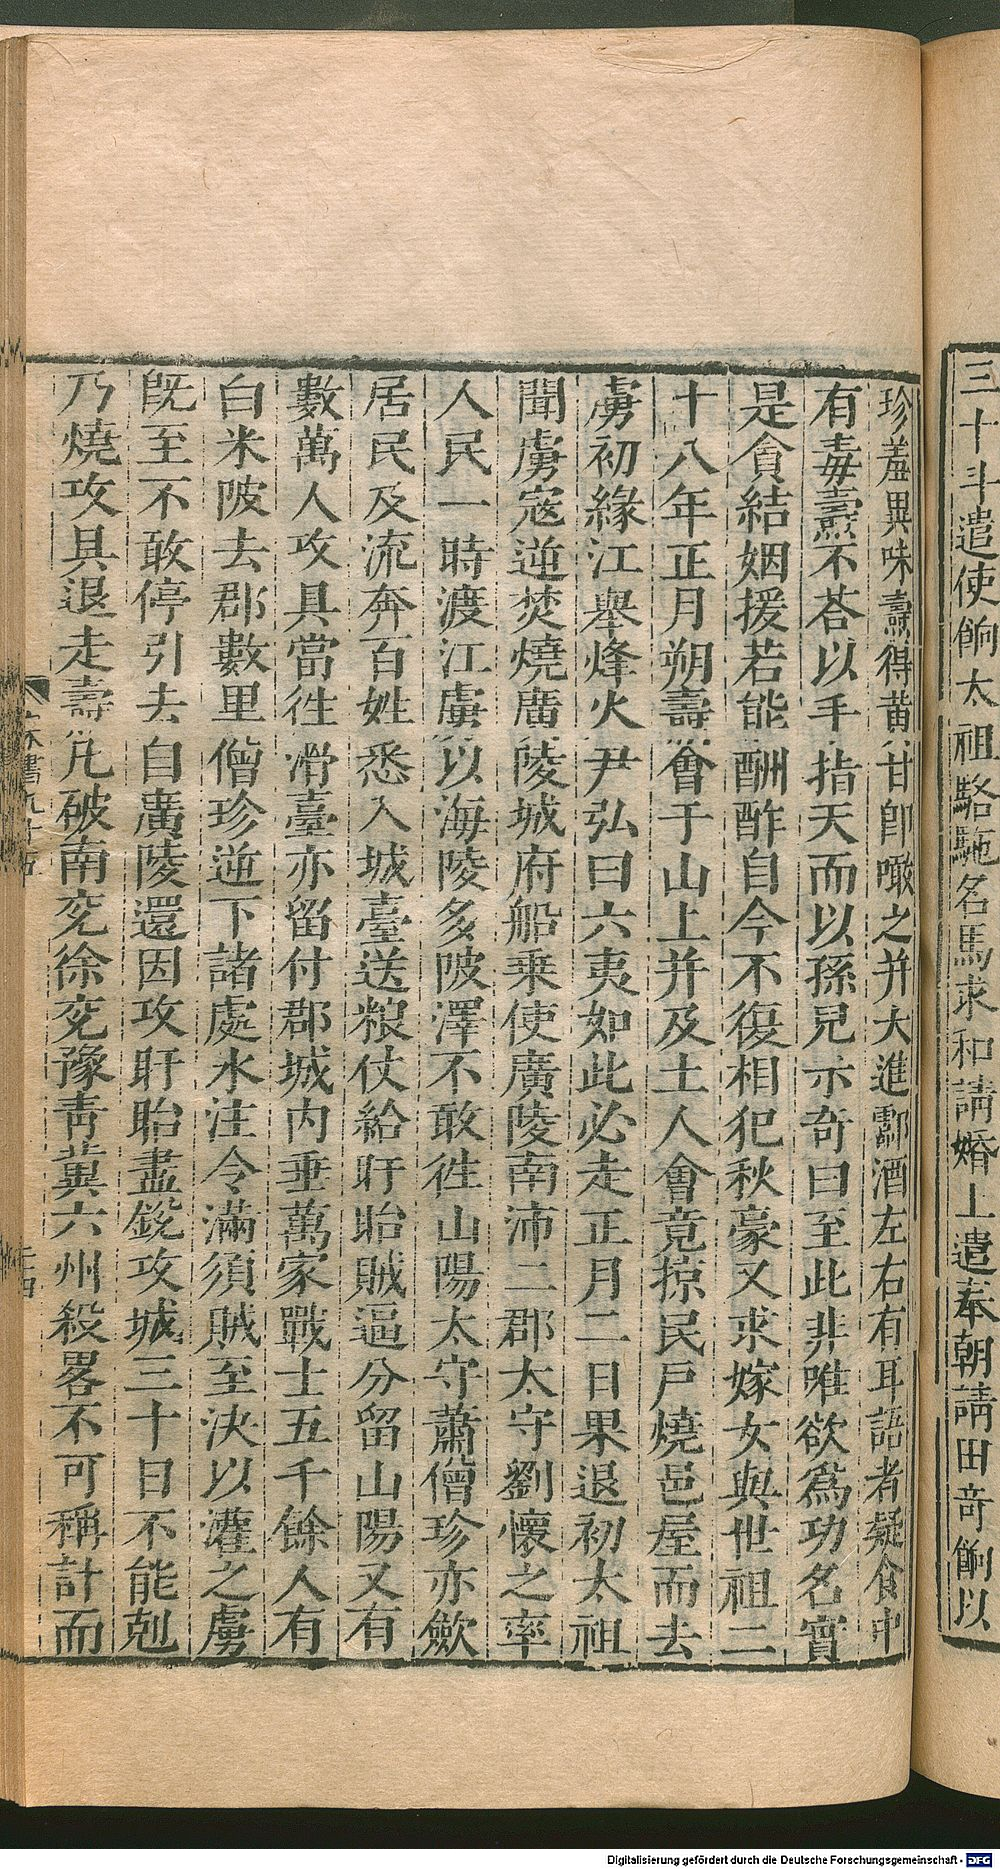 三十斗遣使餉太祖駱駞名馬求和請婚上遣奉朝請田奇餉以
珍羞異味燾得黃甘即噉之并大進酃酒左右有耳語者疑食中
有毒燾不荅以手指天而以孫兒示奇曰至此非唯欲爲功名實
是貪結姻援若能酬酢自今不復相犯秋豪又求嫁女與世祖二
十八年正月朔壽會于山上并及土人會竟掠民戶燒邑屋而去
虜初緣江舉烽火尹弘曰六夷如此必走正月二日果退初太祖
聞虜寇逆焚燒廣陵城府船乗使廣陵南沛二郡太守劉懷之率
人民一時渡江虜以海陵多陂澤不敢徃山陽太守蕭僧珍亦歛
居民及流奔百姓悉入城臺送粮仗給盱眙賊逼分留山陽又有
數萬人攻具當徃滑臺亦留付郡城內垂萬家戰士五千餘人有
白米陂去郡數里僧珍逆下諸處水注令滿須賊至決以灌之虜
旣至不敢停引去自廣陵還因攻盱眙盡銳攻城三十日不能剋
乃燒攻具退走壽凡破南兖徐兖豫青冀六州殺畧不可稱計而
Digitalisierung gefördert durch die Deutsche Forschungsgemeinschaft - DFG